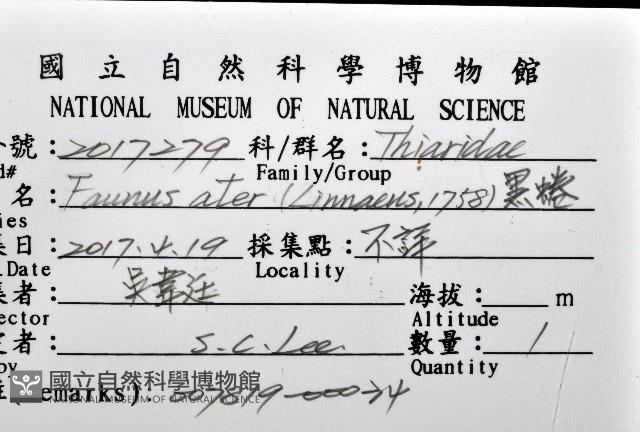 國立自然科學博物館
NATIONAL MUSEUM OF NATURAL SCIENCE
號: 2017279 科/群名: Thiaridae
d# Family/Group
名: Faunus ater (Linnaeus, 1758) 黑蜷
ies
日: 2017.4.19 採集點: 不詳
.Date Locality
者: 吳韋廷 海拔: m
ector Altitude
者: S.C. Lee 數量: 1
by Quantity
國立自然科學博物館
NATIONAL MUSEUM OF NATURAL SCIENCE
emarks):